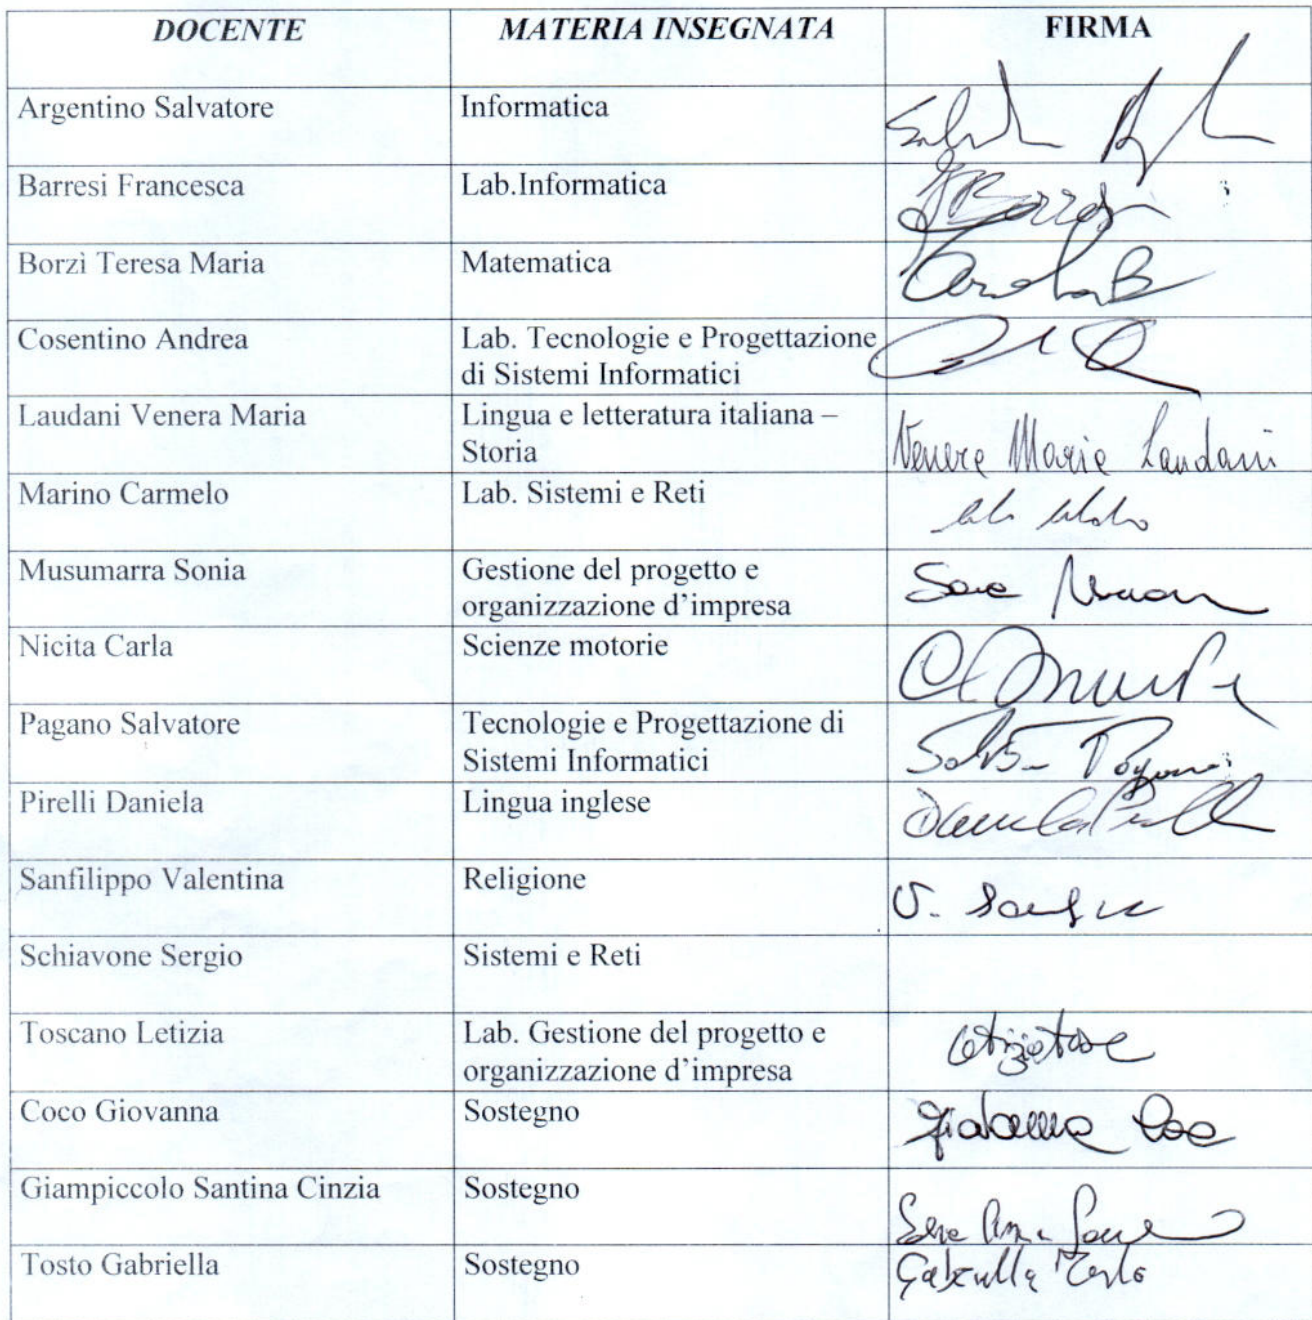 DOCENTE MATERIA INSEGNATA FIRMA
Argentino Salvatore Informatica
Barresi Francesca Lab.Informatica
Borzì Teresa Maria Matematica
Cosentino Andrea Lab. Tecnologie e Progettazione
di Sistemi Informatici
Laudani Venera Maria Lingua e letteratura italiana –
Storia Venera Maria Laudani
Marino Carmelo Lab. Sistemi e Reti
Musumarra Sonia Gestione del progetto e
organizzazione d'impresa
Nicita Carla Scienze motorie
Pagano Salvatore Tecnologie e Progettazione di
Sistemi Informatici
Pirelli Daniela Lingua inglese
Sanfilippo Valentina Religione
Schiavone Sergio Sistemi e Reti
Toscano Letizia Lab. Gestione del progetto e
organizzazione d'impresa
Coco Giovanna Sostegno Giovanna Coco
Giampiccolo Santina Cinzia Sostegno
Tosto Gabriella Sostegno Gabriella Tosto